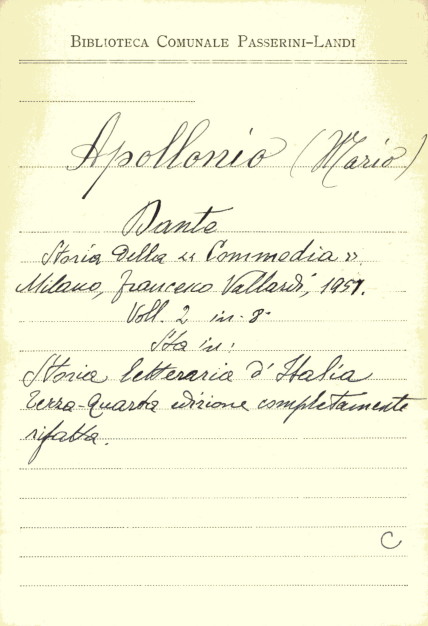 BIBLIOTECA COMUNALE PASSERINI-LANDI
Apollonio (Mario)
Dante
Storia della « Commedia »
Milano, Francesco Vallardi, 1951.
Voll. 2 in-8°
Sta in:
Storia letteraria d'Italia
Terza-Quarta edizione completamente
rifatta.
C